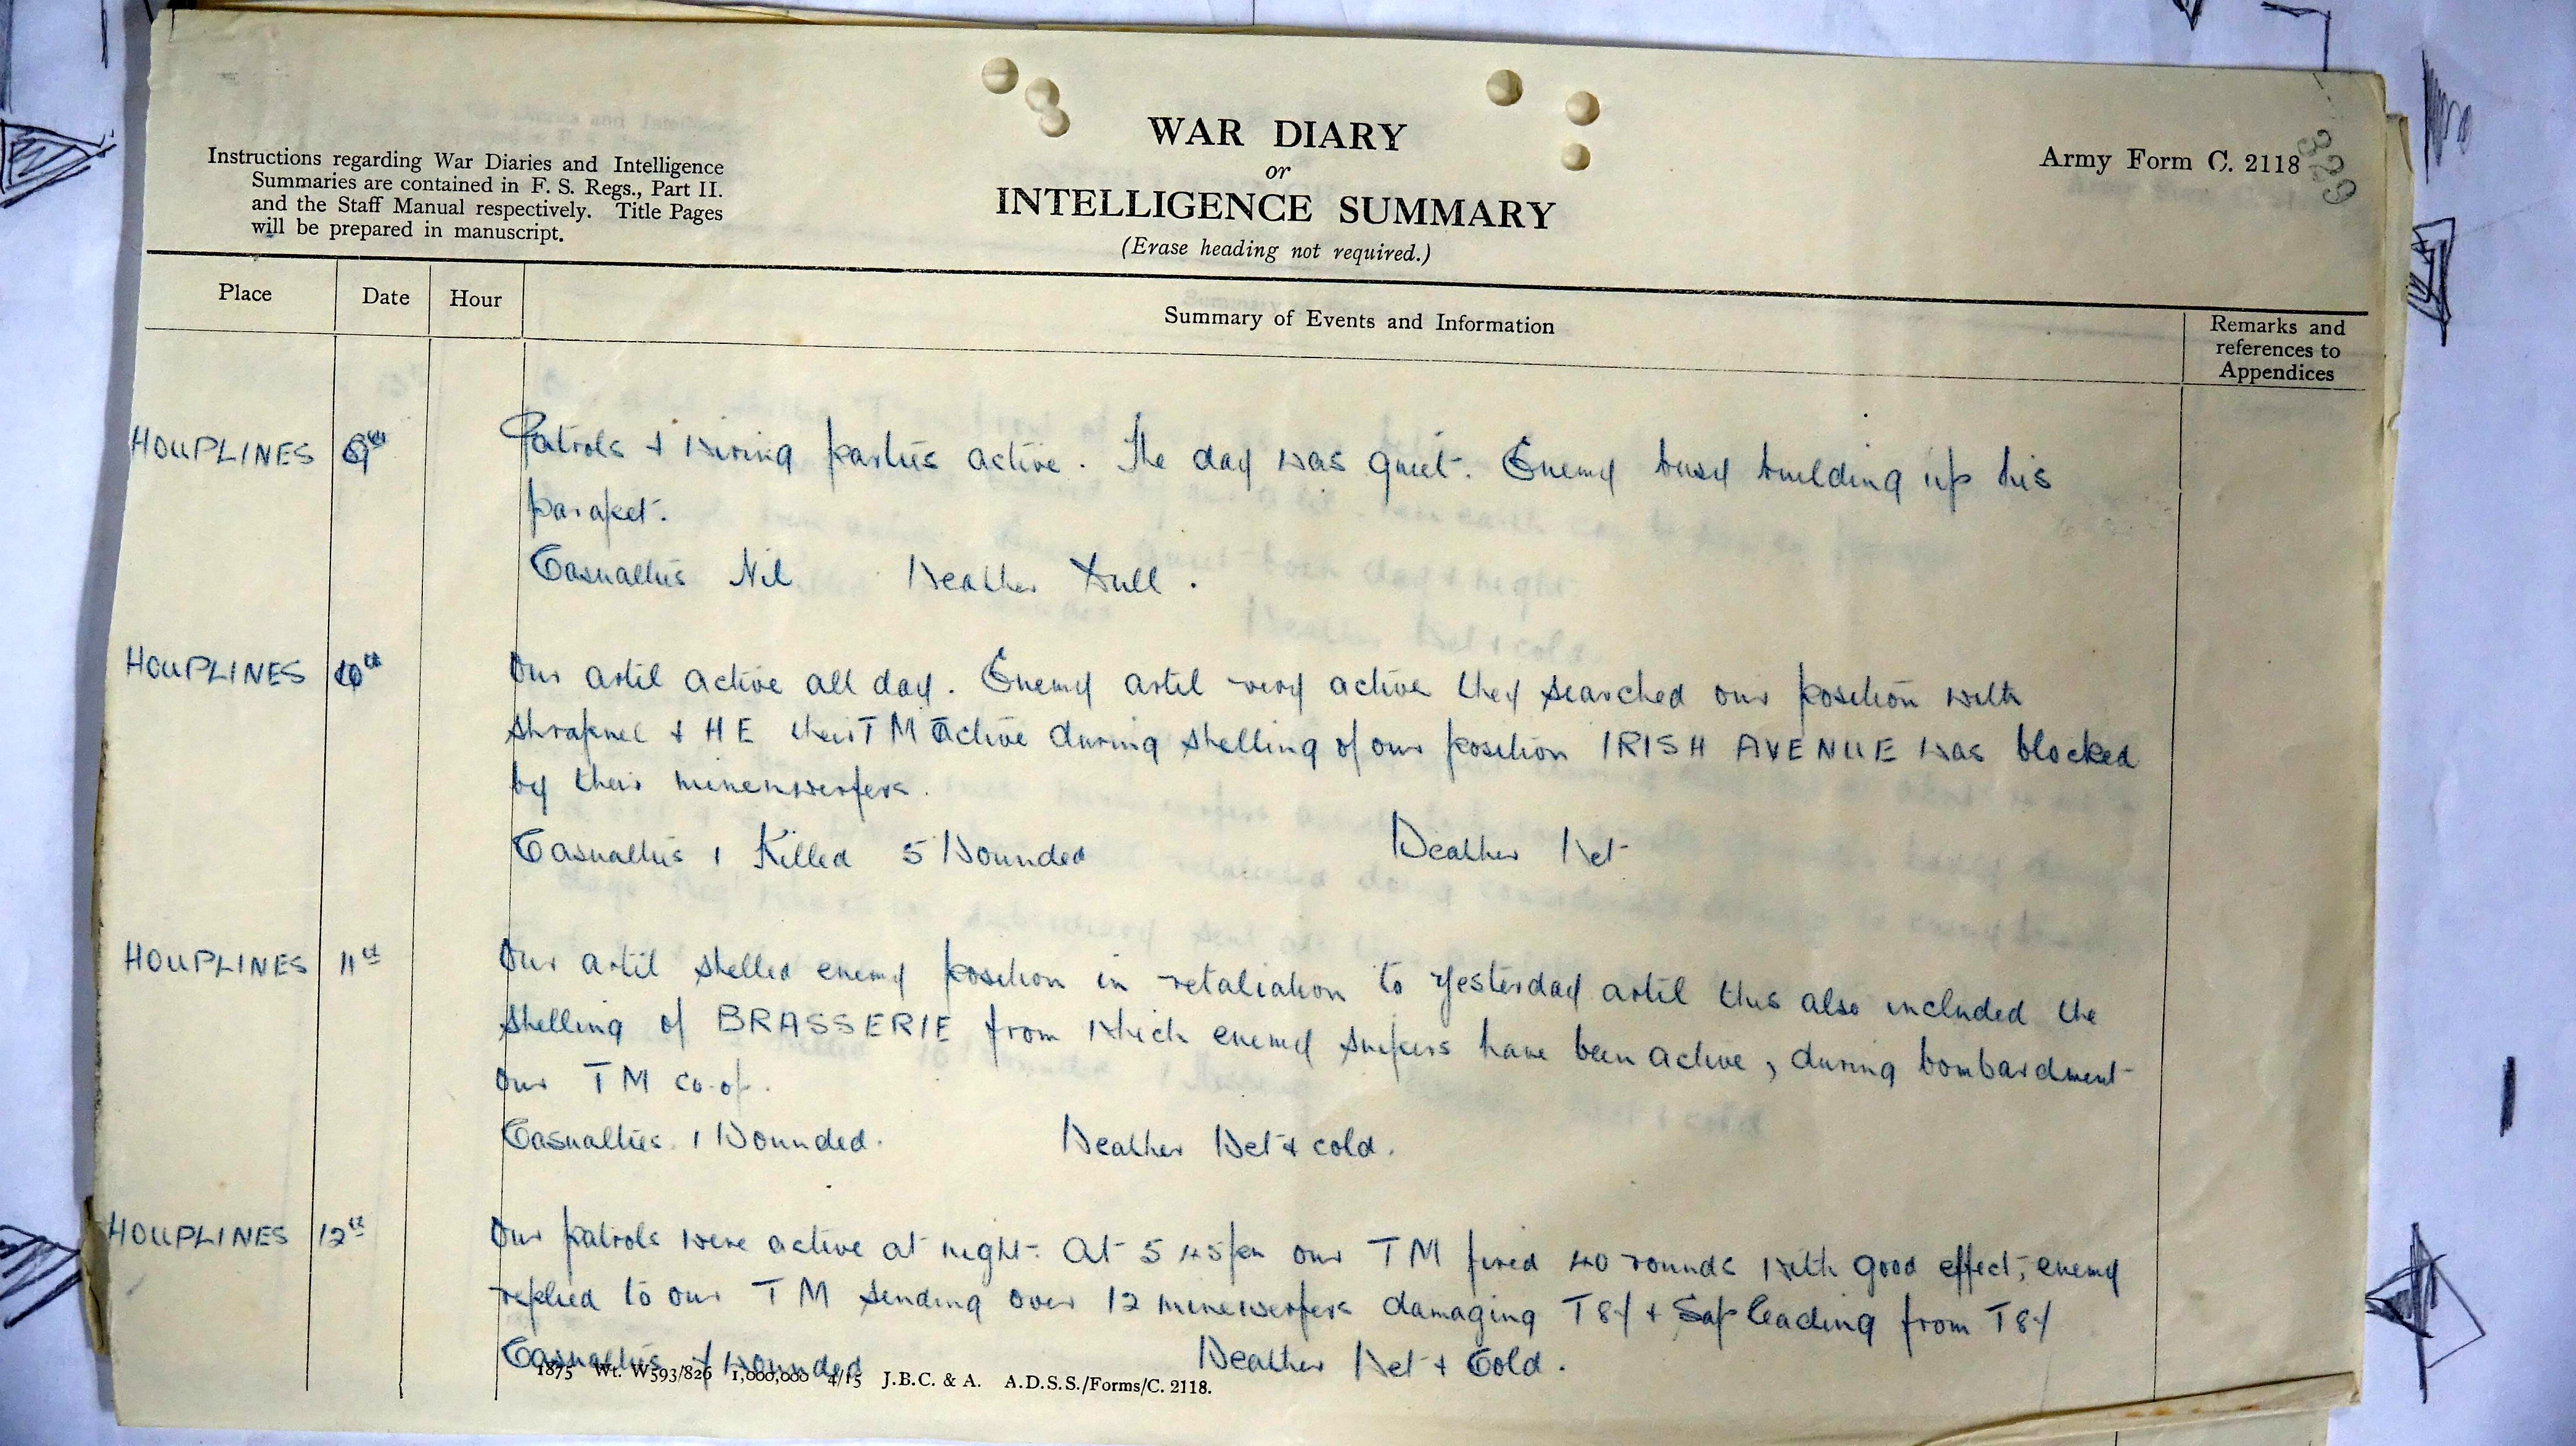 WAR DIARY
or
INTELLIGENCE SUMMARY
(Erase heading not required.)
Instructions regarding War Diaries and Intelligence
Summaries are contained in F. S. Regs., Part II.
and the Staff Manual respectively. Title Pages
will be prepared in manuscript.
Army Form C. 2118
329
Place Date Hour Summary of Events and Information Remarks and
references to
Appendices
HOUPLINES 9th Patrols & Wiring parties active. The day was quiet. Enemy busy building up his
parapet.
Casualties Nil Weather Dull.
HOUPLINES 10th Our artil active all day. Enemy artil very active they searched our position with
shrapnel & HE their TM Active during shelling of our position IRISH AVENUE was blocked
by their minenwerfers.
Casualties 1 Killed 5 Wounded Weather Wet
HOUPLINES 11th Our artil shelled enemy position in retaliation to yesterday artil this also included the
shelling of BRASSERIE from which enemy snipers have been active, during bombardment
our TM co. op.
Casualties 1 Wounded. Weather Wet & cold.
HOUPLINES 12th Our patrols were active at night. At 5 45 pm our TM fired 40 rounds with good effect, enemy
replied to our TM sending over 12 minewerfers damaging T 84 & Sap leading from T 84
Casualties Wounded Weather Wet & Cold.
1875 Wt. W593/826 1,000,000 4/15 J.B.C. & A. A.D.S.S./Forms/C. 2118.